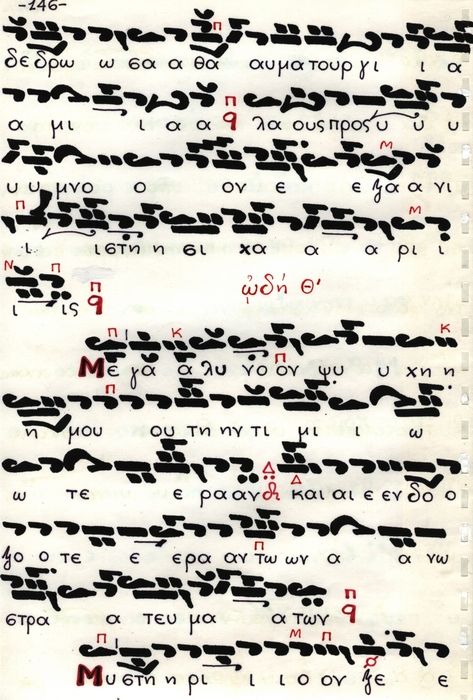 -146-
δεδρω ω σα α θα αυματουργι ι α
α μι ι α α λα ους προς υ υ υ
υ υ μνο ον ε ξα α νι
ι στη η σι χα α α ρι ι
ι ις ᾠδή Θ'
Με γα α λυ νο ον ψυ υ χη η
η μου ου τη ην τι μι ι ω
ω τε ε ρα αν και αι ε εν δο ο
ξο ο τε ε ερα αν τω ων α α νω
στρα α τευ μα α των
Μυ στη η ρι ι ι ο ον ξε ε